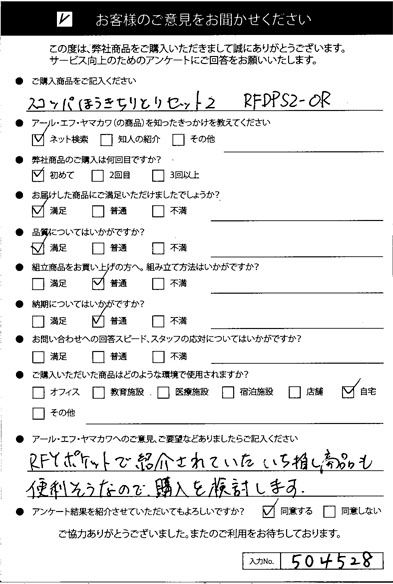 お客様のご意見をお聞かせください
この度は、弊社商品をご購入いただきまして誠にありがとうございます。
サービス向上のためのアンケートにご回答をお願いいたします。
● ご購入商品をご記入ください
スコッパほうきちりとりセット2 RFDPS2-OR
● アール・エフ・ヤマカワ(の商品)を知ったきっかけを教えてください
☑ ネット検索 □ 知人の紹介 □ その他
● 弊社商品のご購入は何回目ですか？
☑ 初めて □ 2回目 □ 3回以上
● お届けした商品にご満足いただけましたでしょうか？
☑ 満足 □ 普通 □ 不満
● 品質についてはいかがですか？
☑ 満足 □ 普通 □ 不満
● 組立商品をお買い上げの方へ。組み立て方法はいかがですか？
□ 満足 ☑ 普通 □ 不満
● 納期についてはいかがですか？
□ 満足 ☑ 普通 □ 不満
● お問い合わせへの回答スピード、スタッフの応対についてはいかがですか？
□ 満足 □ 普通 □ 不満
● ご購入いただいた商品はどのような環境で使用されますか？
□ オフィス □ 教育施設 □ 医療施設 □ 宿泊施設 □ 店舗 ☑ 自宅
□ その他
● アール・エフ・ヤマカワへのご意見、ご要望などありましたらご記入ください
RFYポケットで紹介されていた いち推し商品も
便利そうなので、購入を検討します.
● アンケート結果を紹介させていただいてもよろしいですか？ ☑ 同意する □ 同意しない
ご協力ありがとうございました。またのご利用をお待ちしております。
入力No. 504528